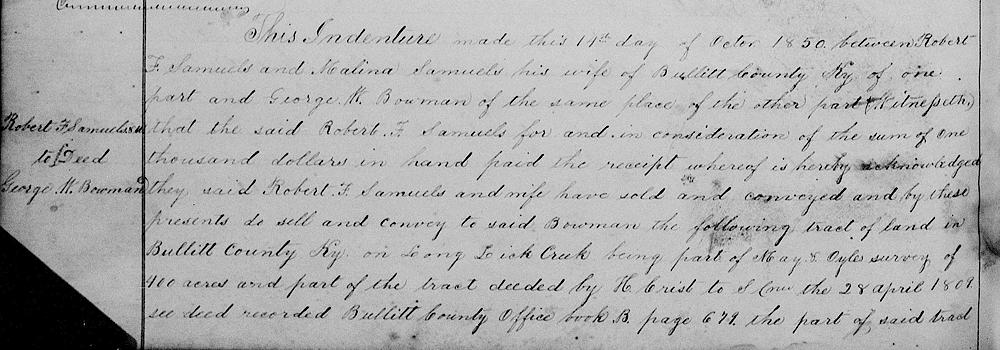 This Indenture made this 14th day of Octor 1850 between Robert
F. Samuels and Malina Samuels his wife of Bullitt County Ky of one
part and George W. Bowman of the same place of the other part (Witnesseth,)
Robert F Samuels & that the said Robert. F Samuels for and in consideration of the sum of One
to Deed thousand dollars in hand paid the receipt whereof is hereby acknowledged
George W. Bowman they said Robert. F. Samuels and wife have sold and conveyed and by these
presents do sell and convey to said Bowman the following tract of land in
Bullitt County Ky. on Long Lick Creek being part of May & Oyles survey of
400 acres and part of the tract deeded by H Crist to S the 28 april 1809.
see deed recorded Bullitt County Office book B. page 679. the part of said tract